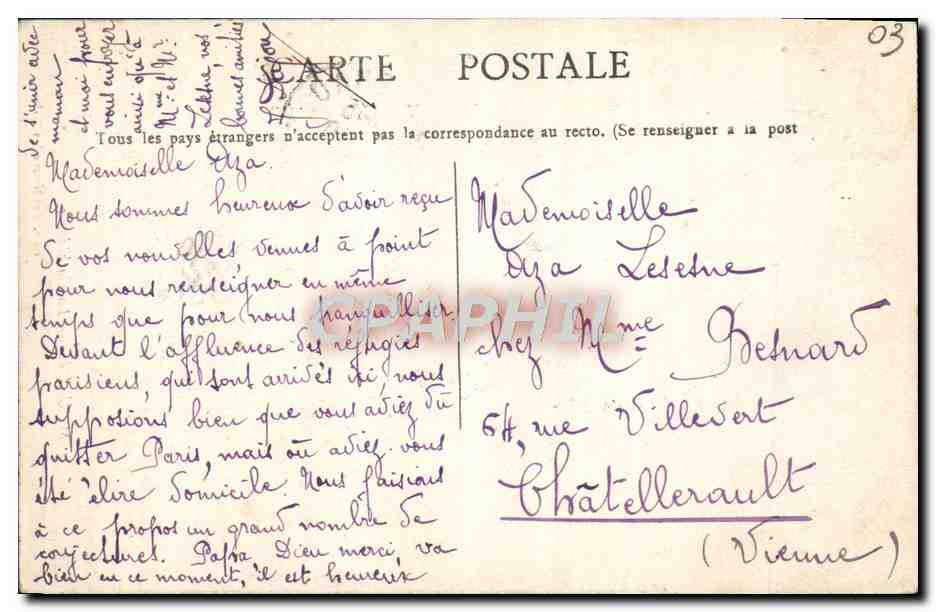 03
CARTE POSTALE
Tous les pays étrangers n'acceptent pas la correspondance au recto. (Se renseigner à la post
Mademoiselle Aza.
Nous sommes heureux d'avoir reçu
de vos nouvelles venues à point
pour nous renseigner en même
temps que pour nous tranquilliser
Devant l'affluence des réfugiés
parisiens, qui sont arrivés ici, nous
supposions bien que vous aviez dû
quitter Paris, mais où aviez-vous
été élire domicile. Nous faisions
à ce propos un grand nombre de
conjectures. Papa Dieu merci, va
bien en ce moment, il est heureux
de s'unir avec
maman
et moi pour
vous envoyer
ainsi qu'à
Mme et Mr
Lesesne, vos
bonnes amitiés
Mademoiselle
Aza Lesesne
chez Mme Besnard
64, rue Villevert
Châtellerault
(Vienne)
CPAPHIL